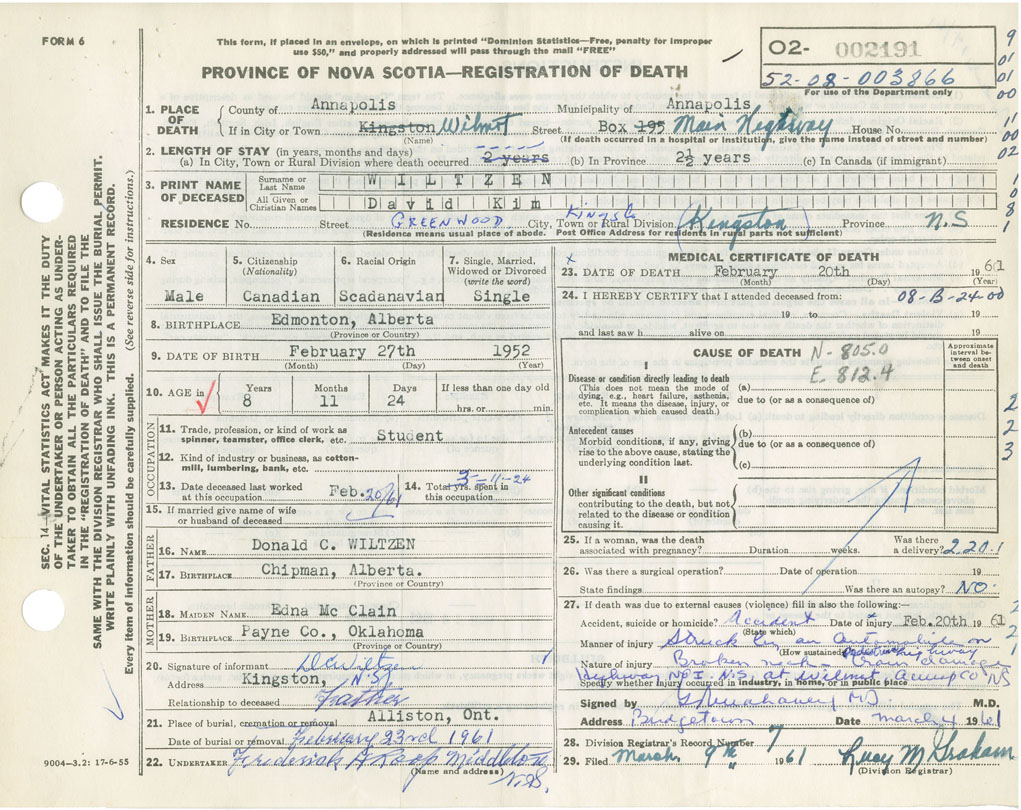 FORM 6
This form, if placed in an envelope, on which is printed "Dominion Statistics—Free, penalty for improper
use $50," and properly addressed will pass through the mail "FREE"
PROVINCE OF NOVA SCOTIA—REGISTRATION OF DEATH
02- 002191
52-08-003866
For use of the Department only
1. PLACE OF DEATH
County of Annapolis Municipality of Annapolis
If in City or Town Kingston Wilmot Street Box 195 Main Highway House No.
(Name) (If death occurred in a hospital or institution, give the name instead of street and number)
2. LENGTH OF STAY (in years, months and days)
(a) In City, Town or Rural Division where death occurred 2 years (b) In Province 2½ years (c) In Canada (if immigrant)
3. PRINT NAME OF DECEASED
Surname or Last Name WILTZEN
All Given or Christian Names David Kim
RESIDENCE No. Street GREENWOOD City, Town or Rural Division Kings Co (Kingston) Province N.S
(Residence means usual place of abode. Post Office Address for residents in rural parts not sufficient)
4. Sex
Male
5. Citizenship
(Nationality)
Canadian
6. Racial Origin
Scadanavian
7. Single, Married,
Widowed or Divorced
(write the word)
Single
8. BIRTHPLACE Edmonton, Alberta
(Province or Country)
9. DATE OF BIRTH February 27th 1952
(Month) (Day) (Year)
10. AGE in
Years Months Days If less than one day old
8 11 24 hrs. or min.
OCCUPATION
11. Trade, profession, or kind of work as
spinner, teamster, office clerk, etc. Student
12. Kind of industry or business, as cotton-
mill, lumbering, bank, etc.
13. Date deceased last worked
at this occupation Feb. 20/61
14. Total yrs. spent in
this occupation 3-11-24
15. If married give name of wife
or husband of deceased
FATHER
16. NAME Donald C. WILTZEN
17. BIRTHPLACE Chipman, Alberta.
(Province or Country)
MOTHER
18. MAIDEN NAME Edna Mc Clain
19. BIRTHPLACE Payne Co., Oklahoma
(Province or Country)
20. Signature of informant DCWiltzen
Address Kingston, N.S.
Relationship to deceased Father
21. Place of burial, cremation or removal Alliston, Ont.
Date of burial or removal February 23rd 1961
22. UNDERTAKER Frederick A Roop Middleton
(Name and address) N.S.
MEDICAL CERTIFICATE OF DEATH
23. DATE OF DEATH February 20th 1961
(Month) (Day) (Year)
24. I HEREBY CERTIFY that I attended deceased from: 08-B-24-00
19 to 19
and last saw h alive on 19
CAUSE OF DEATH N-805.0
E. 812.4
Approximate interval between onset and death
I
Disease or condition directly leading to death (a)
(This does not mean the mode of dying, e.g., heart failure, asthenia, etc. It means the disease, injury, or complication which caused death.)
due to (or as a consequence of)
Antecedent causes (b)
Morbid conditions, if any, giving rise to the above cause, stating the underlying condition last.
due to (or as a consequence of)
(c)
II
Other significant conditions
contributing to the death, but not
related to the disease or condition
causing it.
25. If a woman, was the death Was there
associated with pregnancy? Duration weeks. a delivery? 220.1
26. Was there a surgical operation? Date of operation 19
State findings Was there an autopsy? NO.
27. If death was due to external causes (violence) fill in also the following:—
Accident, suicide or homicide? Accident Date of injury Feb. 20th 1961
(State which)
Manner of injury Struck by an Automobile on
(How sustained) highway
Nature of injury Broken neck - brain damage
Highway No I. N.S. at Wilmot Annap Co NS
Specify whether injury occurred in industry, in home, or in public place
Signed by M.D. M.D.
Address Bridgetown Date March 4 1961
28. Division Registrar's Record Number 7
29. Filed March 9th 1961 Lucy M Graham
(Division Registrar)
SEC. 14—VITAL STATISTICS ACT MAKES IT THE DUTY
OF THE UNDERTAKER OR PERSON ACTING AS UNDER-
TAKER TO OBTAIN ALL THE PARTICULARS REQUIRED
IN THE "REGISTRATION OF DEATH" AND TO FILE THE
SAME WITH THE DIVISION REGISTRAR WHO SHALL ISSUE THE BURIAL PERMIT.
WRITE PLAINLY WITH UNFADING INK. THIS IS A PERMANENT RECORD.
Every item of information should be carefully supplied. (See reverse side for instructions.)
9004—3.2: 17-6-55
9
01
01
00
11
00
02
1
0
8
1
2
2
3
2
1